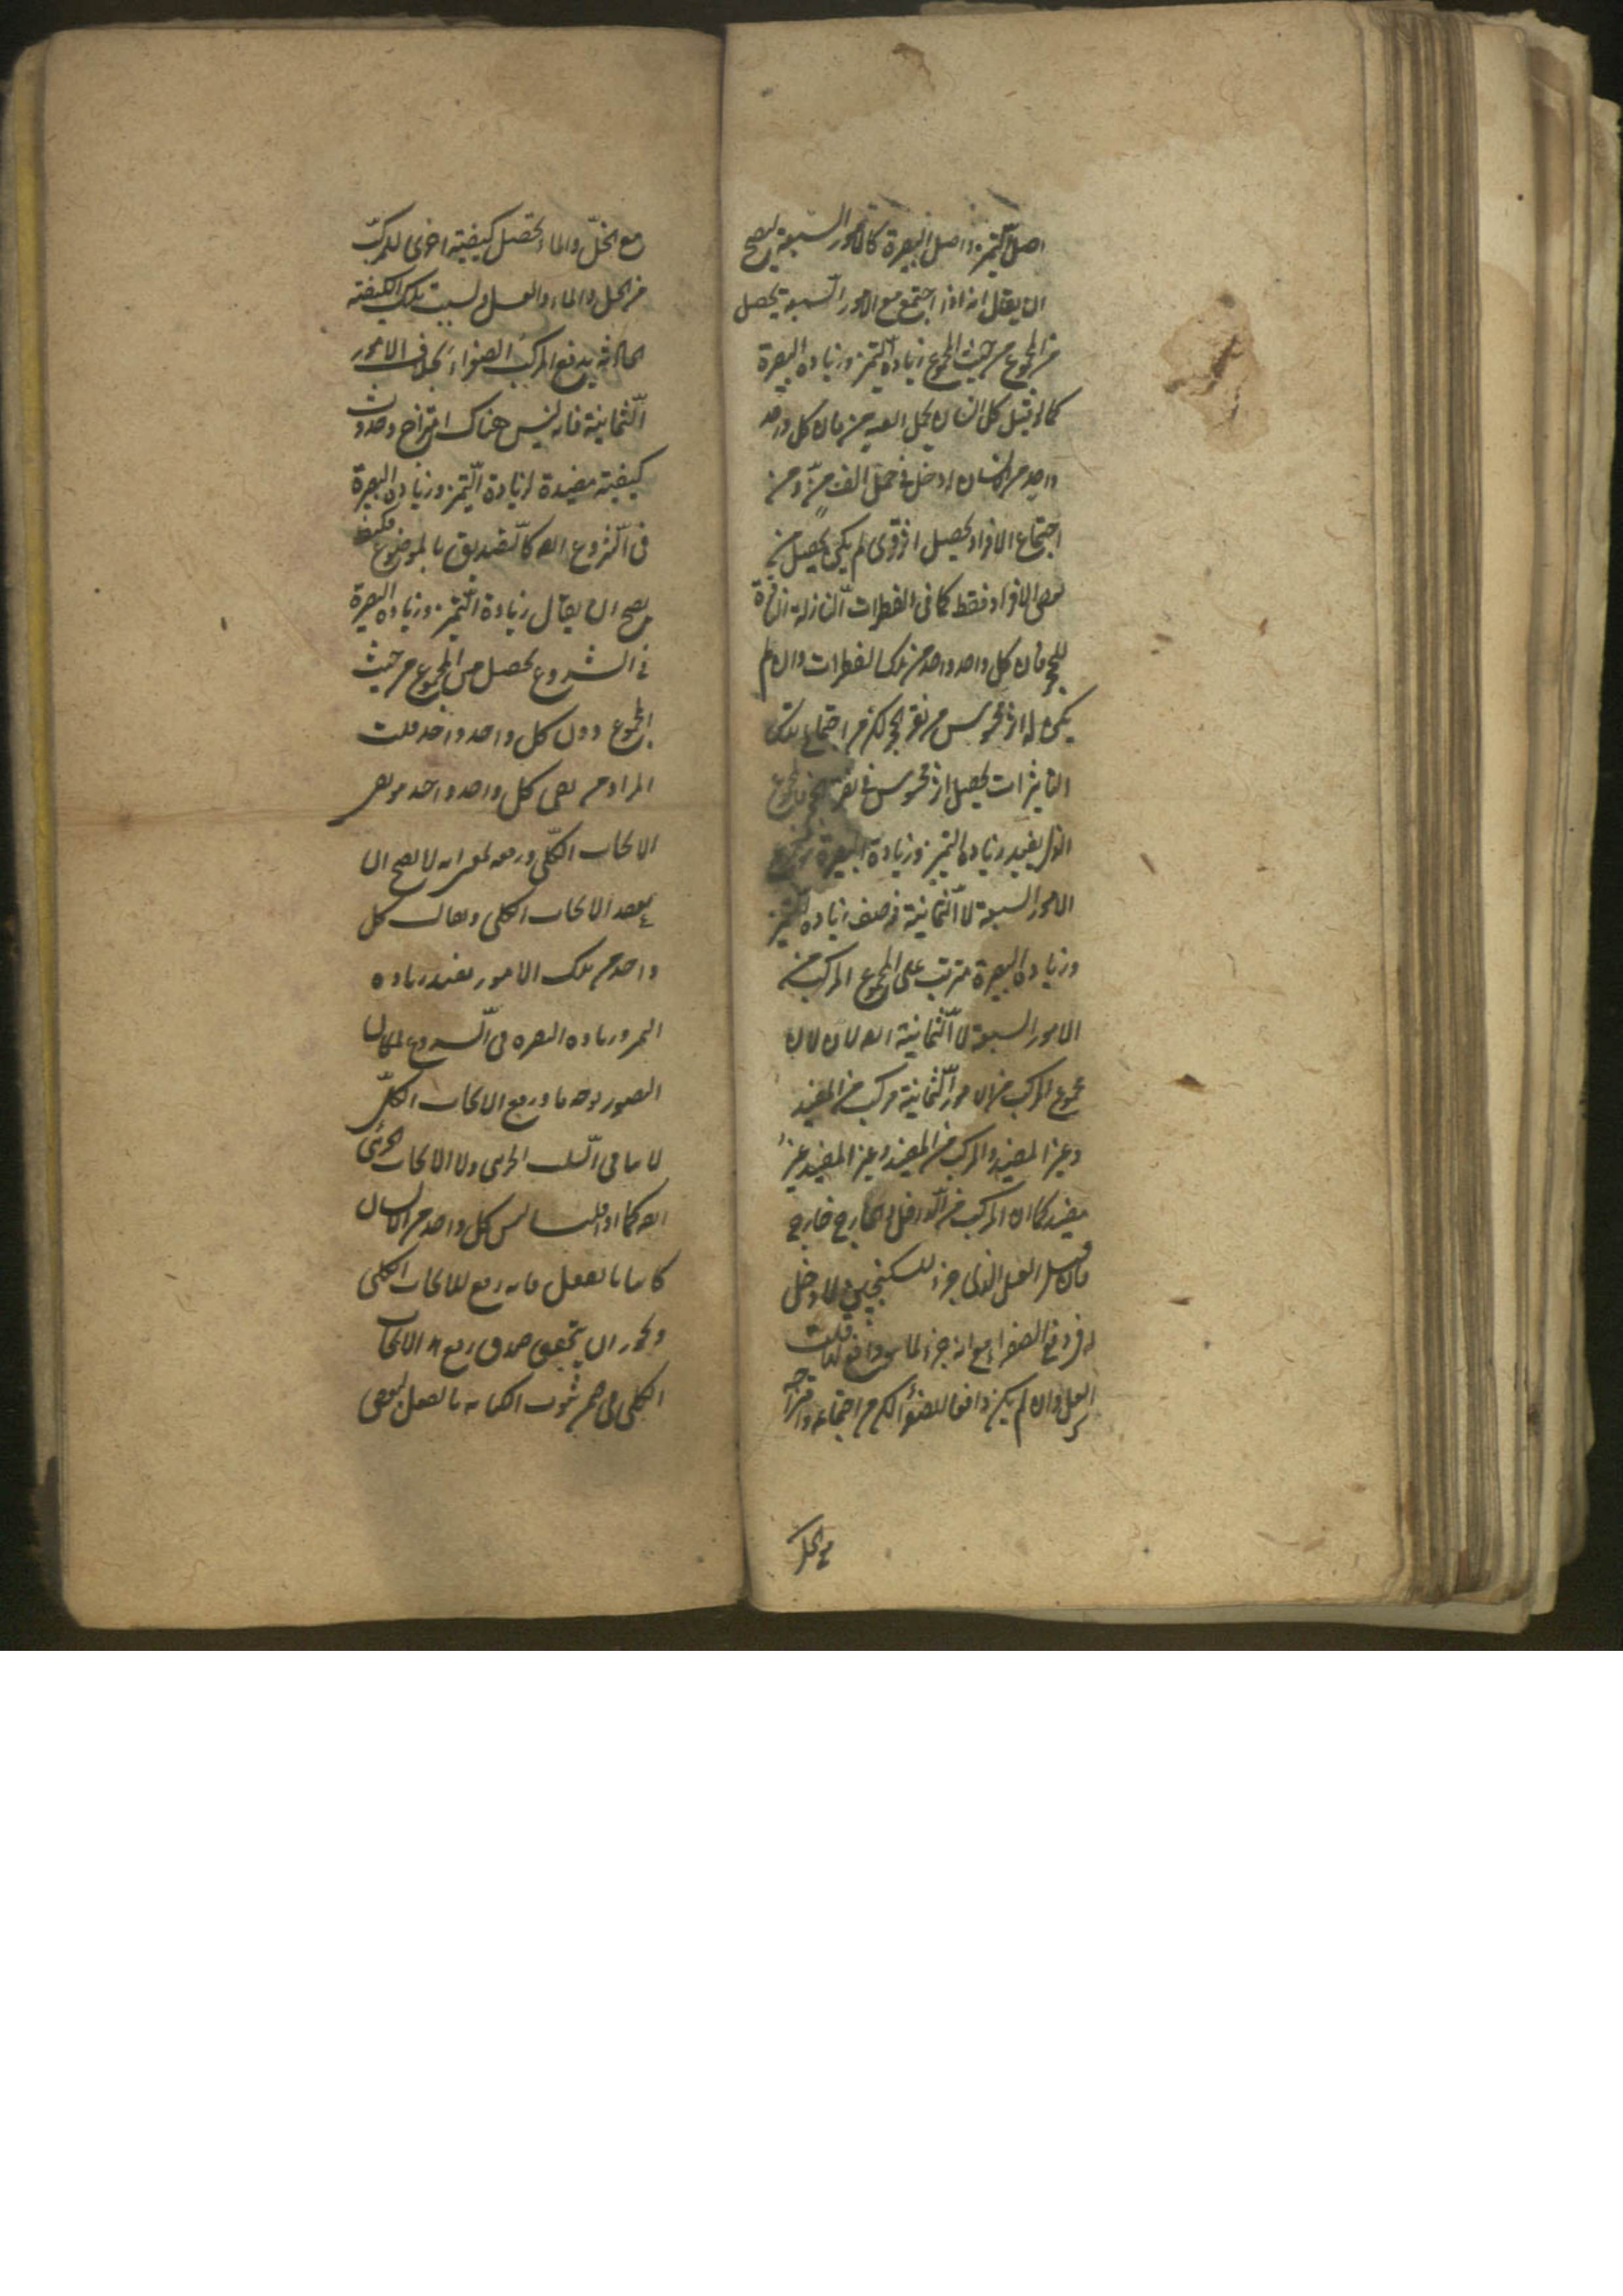 اصل التميز واصل البصرة كالامور السبعة يصح
ان يقال انه اذا اجتمع مع الامور السبعة يحصل
من المجموع من حيث المجموع زيادة التميز وزيادة البصرة
كما لو قيل كل انسان يحمل الف من فان كل واحد
واحد من الانسان له دخل في حمل الف من ومن
اجتماع الافراد يحصل اثر قوى لم يكن يحصل من
بعض الافراد فقط كما في القطرات النازلة الناقرة
للحجر فان كل واحد واحد من تلك القطرات وان لم
يكن له اثر محسوس في نقر الحجر لكن من اجتماع تلك
التاثيرات يحصل اثر محسوس في نقر الحجر فالمجموع
الذي يفيد زيادة التميز وزيادة البصيرة مجموع
الامور السبعة لا الثمانية فوصف زيادة التميز
وزيادة البصرة مترتب على المجموع المركب من
الامور السبعة لا الثمانية
مجموع المركب من الامور الثمانية مركب من المفيد
وغير المفيد والمركب من المفيد وغير المفيد غير
مفيد كما ان المركب من الداخل والخارج خارج
فان قيل العسل الذي جزء للسكنجبين لا دخل
له في دفع الصفراء مع انه جزء لما هو دافع لها قلت
العسل وان لم يكن دافعا للصفراء لكن من اجتماعه وامتزاجه
مع الخل
مع الخل والماء تحصل كيفية اخرى للمركب
من الخل والماء والعسل وبسبب تلك الكيفية
الحادثة يدفع المركب الصفراء بخلاف الامور
الثمانية فانه ليس هناك امتزاج وحدوث
كيفية مفيدة لزيادة التميز وزيادة البصرة
في الشروع كالتصديق بالموضوع فكيف
يصح ان يقال زيادة التميز وزيادة البصرة
في الشروع يحصل من المجموع من حيث
المجموع دون كل واحد واحد قلت
المراد من نفى كل واحد واحد هو نفى
الايجاب الكلى ورفعه بمعنى انه لا يصح ان
يعقد الايجاب الكلى ويقال كل
واحد من تلك الامور يفيد زيادة
التميز وزيادة البصرة في الشروع
التصور بوجه ما ورفع الايجاب الكلى
لا ينافى السلب الجزئى ولا الايجاب الجزئى
كما اذا قلت ليس كل واحد من الانسان
كاتبا بالفعل فانه رفع للايجاب الكلى
ويجوز ان يتحقق صدق رفع الايجاب
الكلى في ضمن ثبوت الكتابة بالفعل لبعض